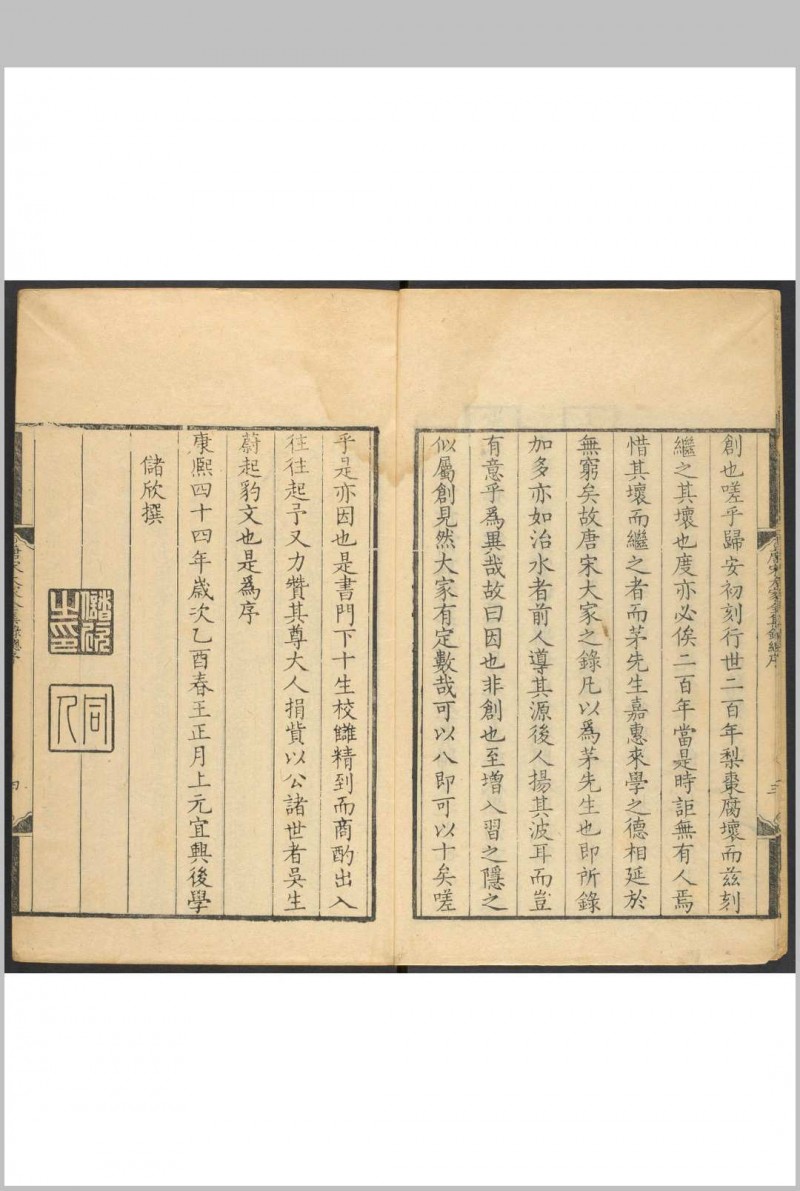 創也嗟乎歸安初刻行世二百年梨棗腐壞而茲刻
繼之其壞也度亦必俟二百年當是時詎無有人焉
惜其壞而繼之者而茅先生嘉惠來學之德相延於
無窮矣故唐宋大家之錄凡以爲茅先生也即所錄
加多亦如治水者前人導其源後人揚其波耳而豈
有意乎爲異哉故曰因也非創也至增入習之隱之
似屬創見然大家有定數哉可以八即可以十矣嗟
乎是亦因也是書門下十生校讎精到而商酌出入
往往起予又力贊其尊大人捐貲以公諸世者吳生
蔚起豹文也是爲序
康熙四十四年歲次乙酉春王正月上元宜興後學
儲欣撰
儲欣之印
同人
唐宋大家全集錄總序
三
四